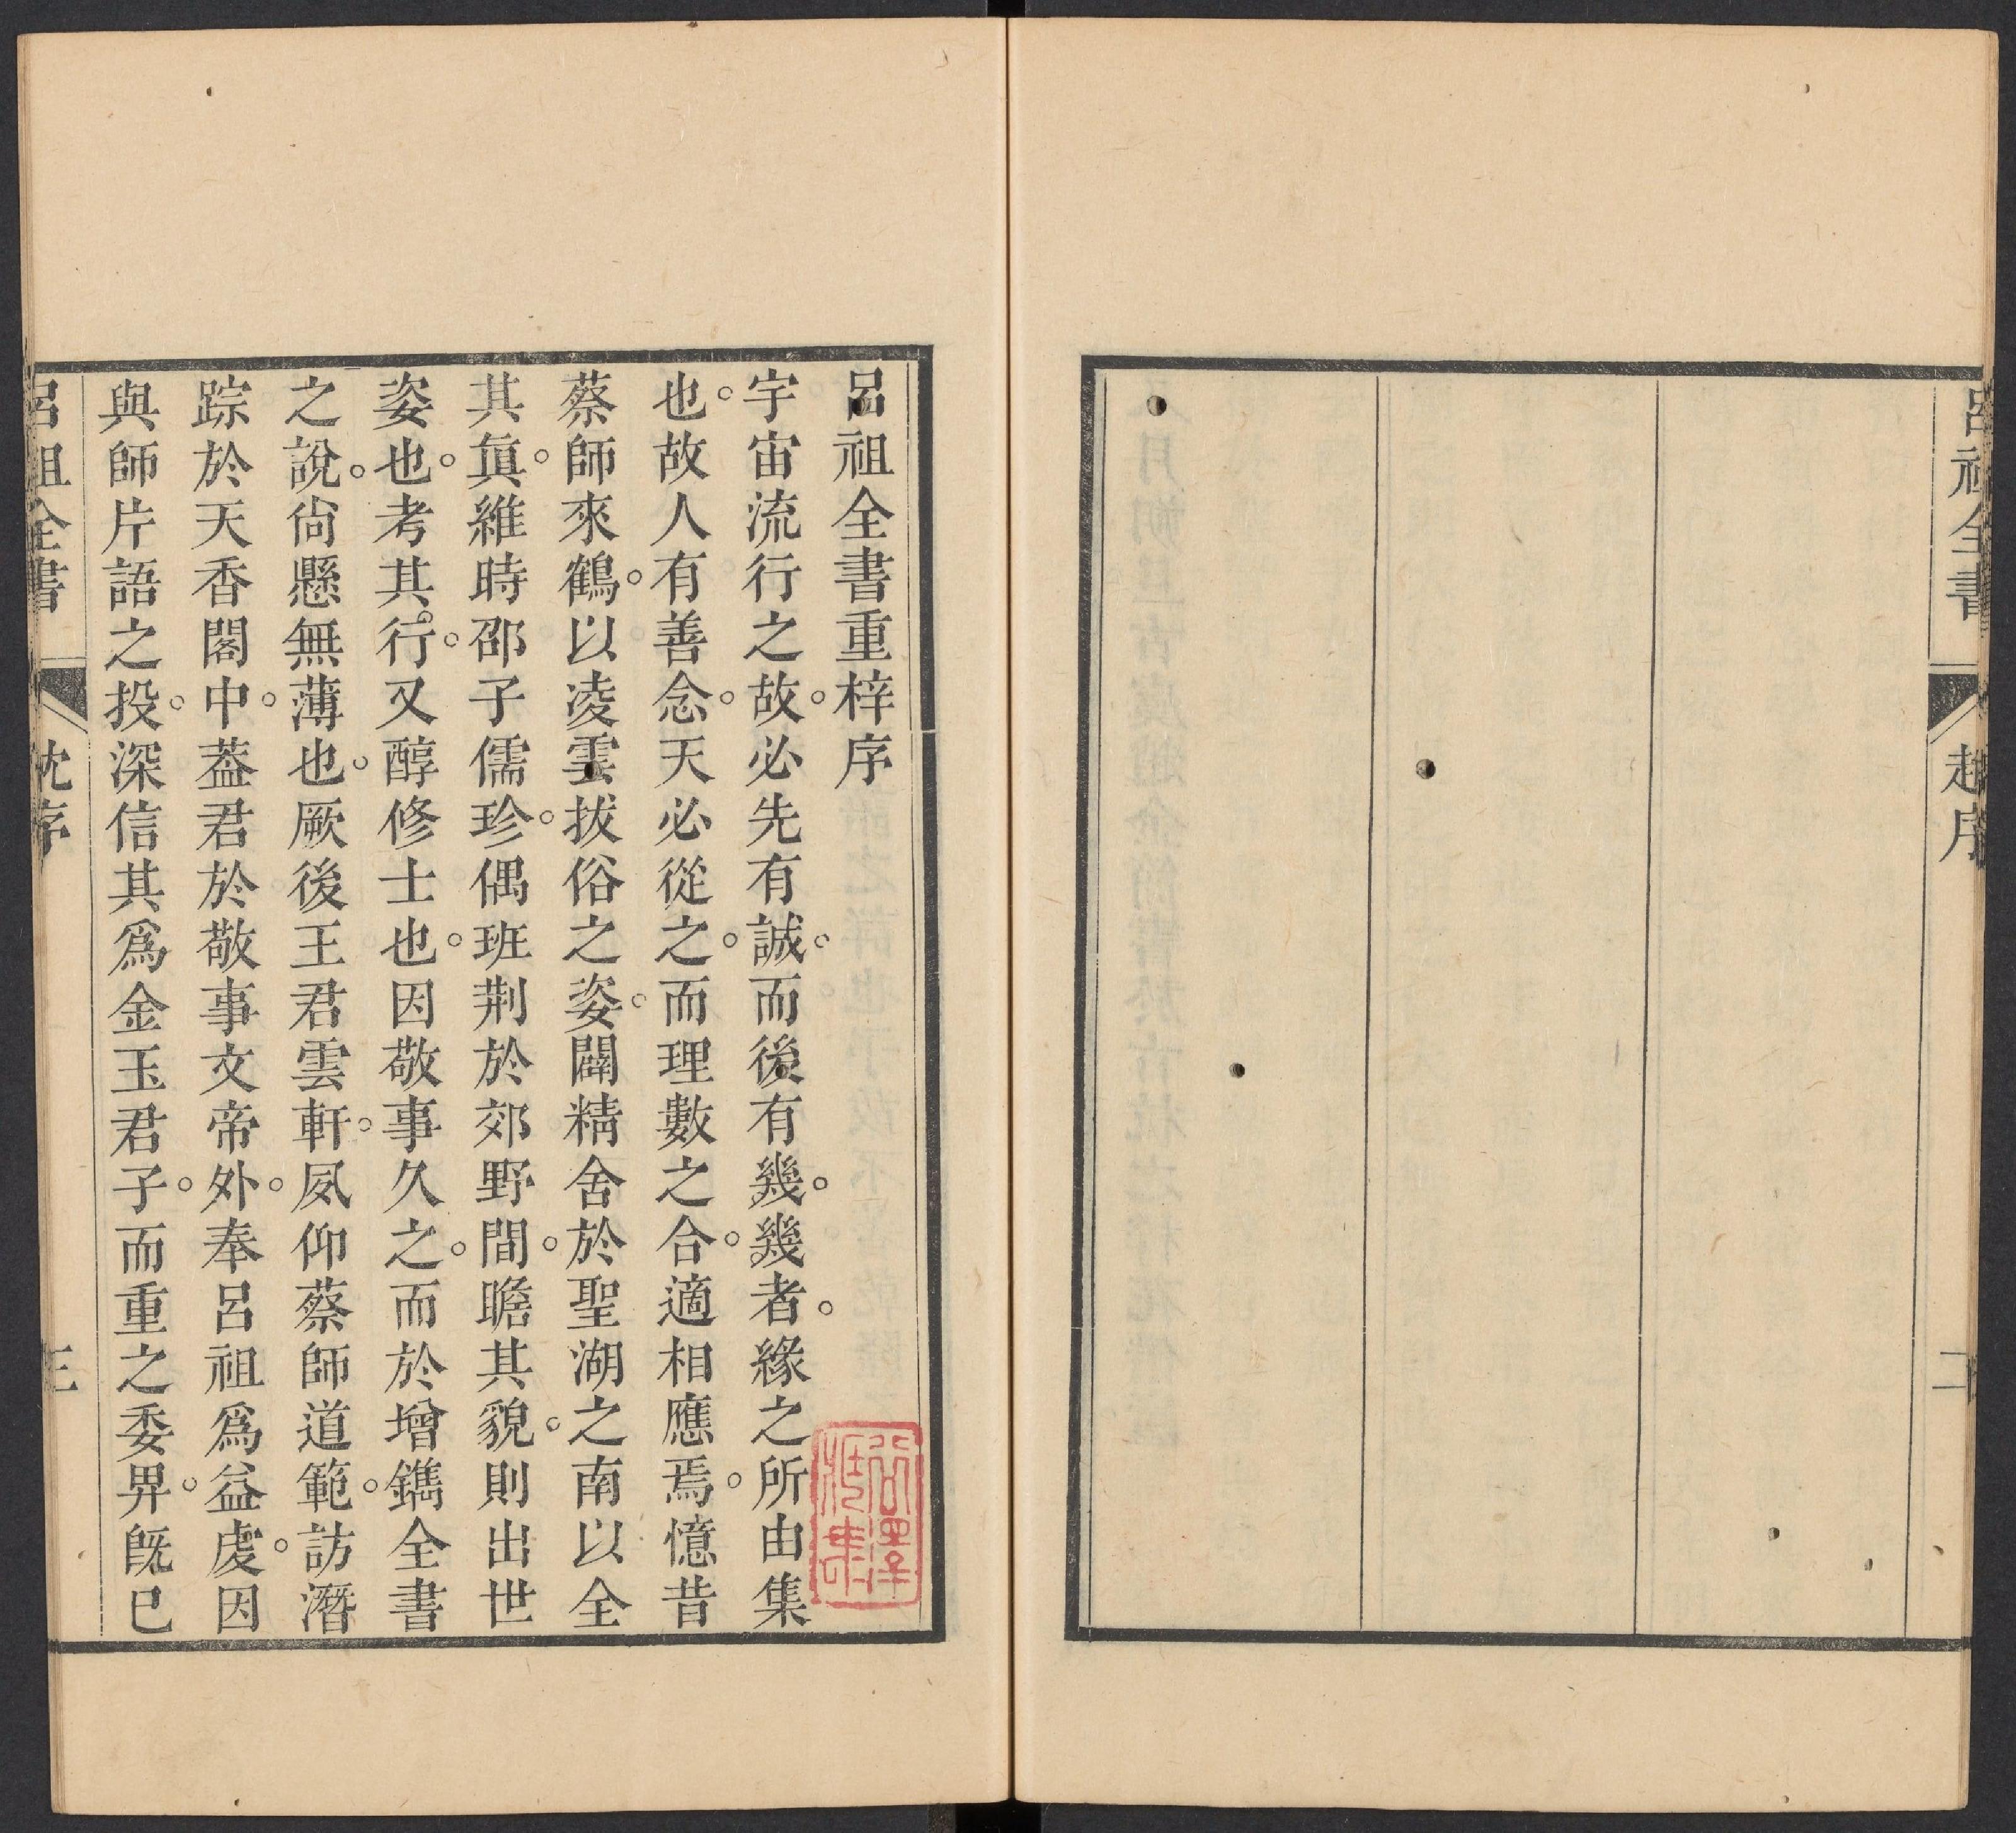 呂祖全書
趙序
二
呂祖全書重梓序
宇宙流行之故。必先有誠。而後有幾。幾者。緣之所由集
也。故人有善念。天必從之。而理數之合。適相應焉。憶昔
蔡師來鶴。以凌雲拔俗之姿。闢精舍於聖湖之南以全
其眞。維時邵子儒珍。偶班荆於郊野間。瞻其貌。則出世
姿也。考其。行。又醇修士也。因敬事久之。而於增鐫全書
之說。尙懸無薄也。厥後王君雲軒。夙仰蔡師道範。訪潛
踪於天香閣中。葢君於敬事文帝外。奉呂祖爲益虔。因
與師片語之投。深信其爲金玉君子。而重之委畀。旣已
呂祖全書
沈序
三